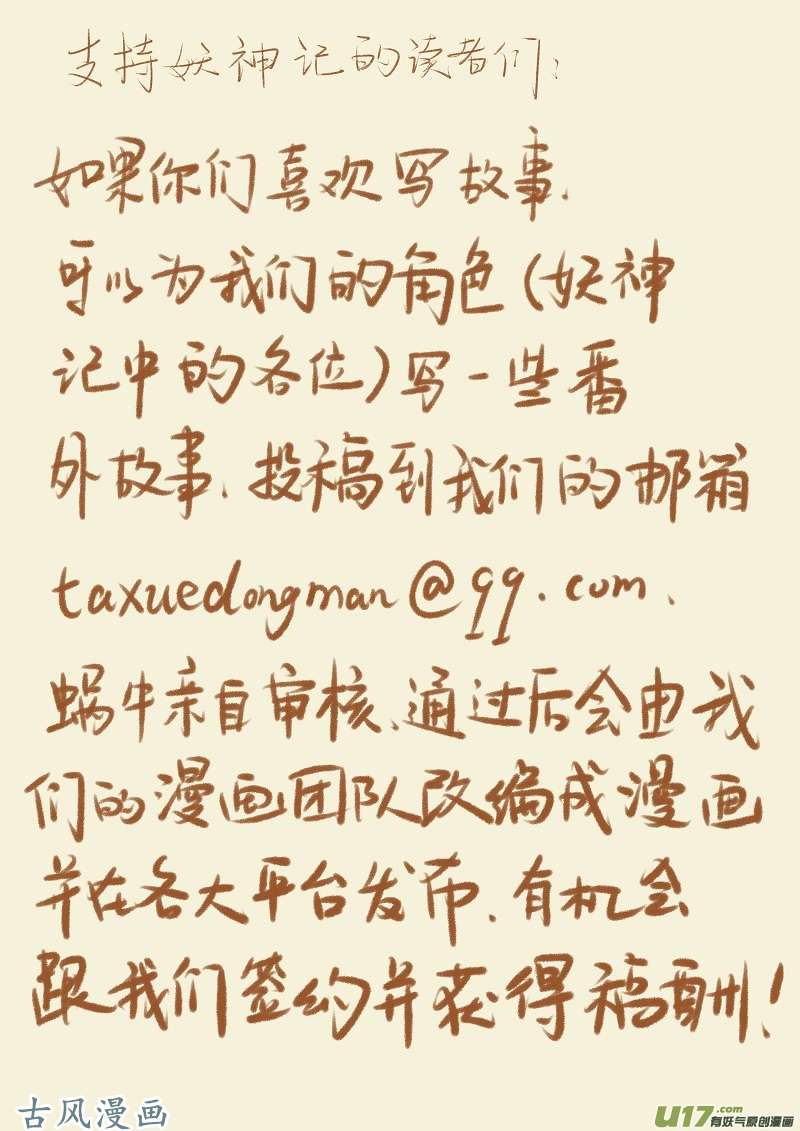 支持妖神记的读者们：
如果你们喜欢写故事，
可以为我们的角色（妖神
记中的各位）写一些番
外故事，投稿到我们的邮箱
taxuedongman@qq.com，
蜗牛亲自审核，通过后会由我
们的漫画团队改编成漫画
并在各大平台发布，有机会
跟我们签约并获得稿酬！
古风漫画
U17.com
有妖气原创漫画